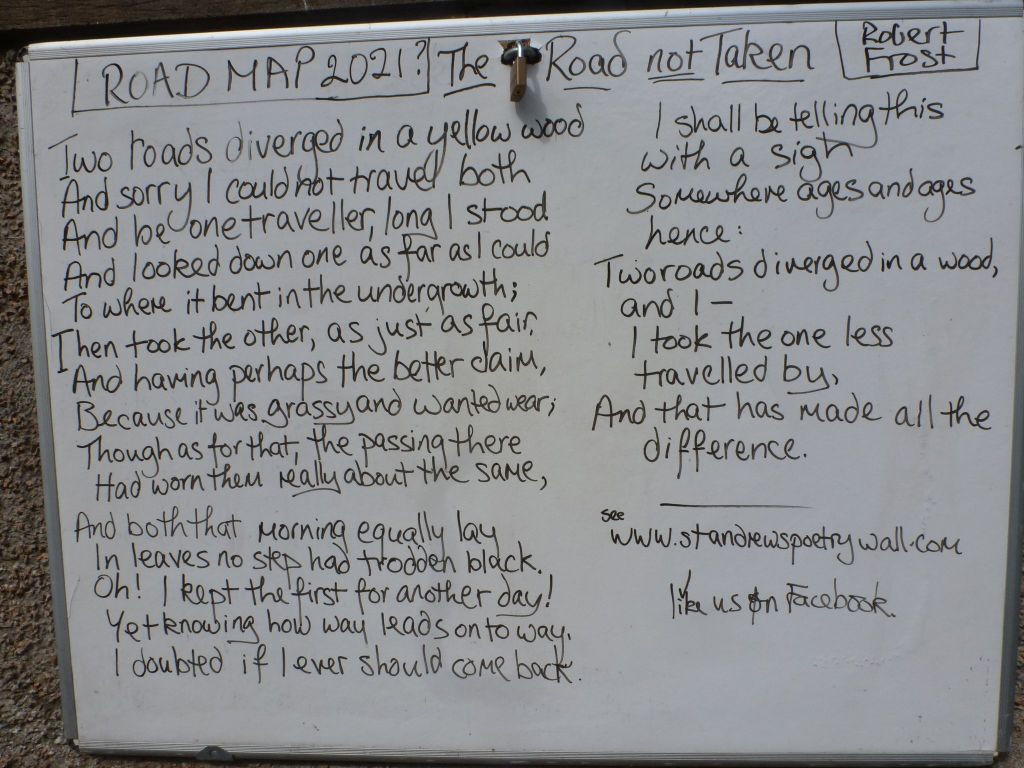 ROAD MAP 2021? The Road not Taken Robert Frost
Two roads diverged in a yellow wood
And sorry I could not travel both
And be one traveller, long I stood
And looked down one as far as I could
To where it bent in the undergrowth;
Then took the other, as just as fair,
And having perhaps the better claim,
Because it was grassy and wanted wear;
Though as for that, the passing there
Had worn them really about the same,
And both that morning equally lay
In leaves no step had trodden black.
Oh! I kept the first for another day!
Yet knowing how way leads on to way,
I doubted if I ever should come back.
I shall be telling this
with a sigh
Somewhere ages and ages
hence:
Two roads diverged in a wood,
and I —
I took the one less
travelled by,
And that has made all the
difference.
see
www.standrewspoetrywall.com
like us on Facebook.